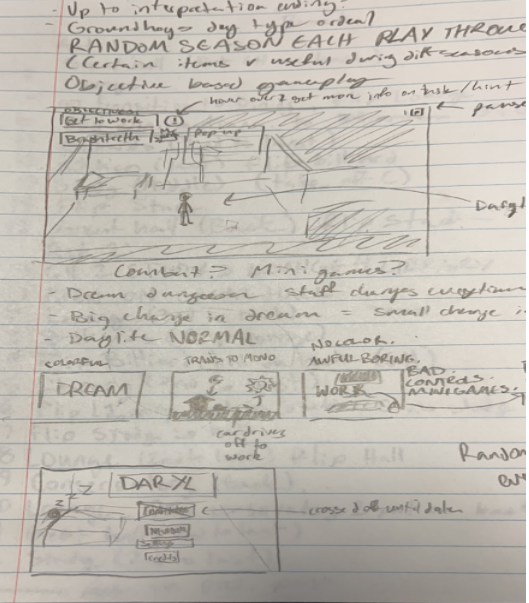 - Up to interpretation ending.
- Groundhogs day type ordeal
RANDOM SEASON EACH PLAY THROU
(Certain items r useful during diff seasons
Objective based gameplay
hover over 2 get more info on task/hint
OBJECTIVES:
Get to work
paus
Brush teeth
Pop up
Daryl
Combat? Minigames?
- Dream dungeon stuff changes everytim
- Big change in dream = small change i
- Daylife NORMAL
COLORFUL
TRANS TO MONO
NO COLOR.
AWFUL BORING.
DREAM
WORK
BAD
CONTROLS
MINIGAMES.
car drives
off to
work
Rando
eve
z z Z
DARYL
crossed off until
Settings
Credits